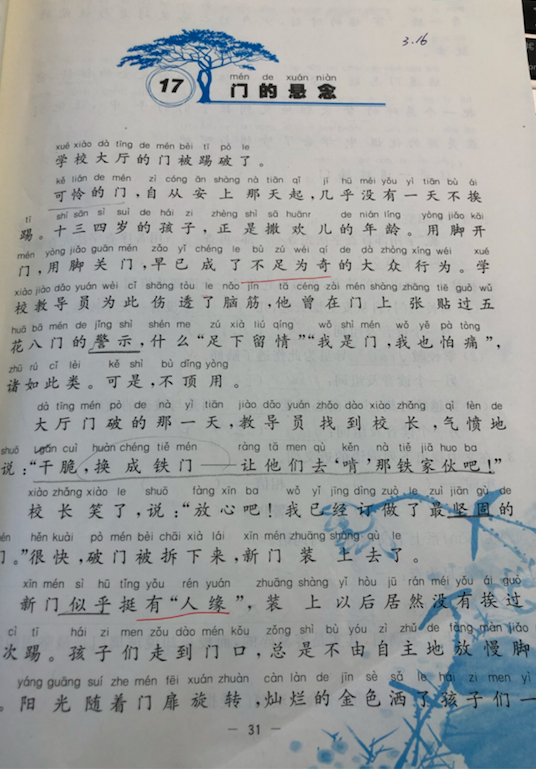 3.16
17
mén de xuán niàn
门的悬念
xué xiào dà tīng de mén bèi tī pò le
学校大厅的门被踢破了。
kě lián de mén zì cóng ān shàng nà tiān qǐ jī hū méi yǒu yì tiān bù ái
可怜的门,自从安上那天起,几乎没有一天不挨
tī shí sān sì suì de hái zi zhèng shì sā huānr de nián líng yòng jiǎo kāi
踢。十三四岁的孩子,正是撒欢儿的年龄。用脚开
mén yòng jiǎo guān mén zǎo yǐ chéng le bù zú wéi qí de dà zhòng xíng wéi xué
门,用脚关门,早已成了不足为奇的大众行为。学
xiào jiào dǎo yuán wèi cǐ shāng tòu le nǎo jīn tā céng zài mén shàng zhāng tiē guò wǔ
校教导员为此伤透了脑筋,他曾在门上张贴过五
huā bā mén de jǐng shì shén me zú xià liú qíng wǒ shì mén wǒ yě pà tòng
花八门的警示,什么“足下留情”“我是门,我也怕痛”,
zhū rú cǐ lèi kě shì bù dǐng yòng
诸如此类。可是,不顶用。
dà tīng mén pò de nà yì tiān jiào dǎo yuán zhǎo dào xiào zhǎng qì fèn de
大厅门破的那一天,教导员找到校长,气愤地
shuō gān cuì huàn chéng tiě mén ràng tā men qù kěn nà tiě jiā huo ba
说:“干脆,换成铁门——让他们去‘啃’那铁家伙吧!”
xiào zhǎng xiào le shuō fàng xīn ba wǒ yǐ jīng dìng zuò le zuì jiān gù de
校长笑了,说:“放心吧!我已经订做了最坚固的
mén hěn kuài pò mén bèi chāi xià lái xīn mén zhuāng shàng qù le
门。”很快,破门被拆下来,新门装上去了。
xīn mén sì hū tǐng yǒu rén yuán zhuāng shàng yǐ hòu jū rán méi yǒu ái guò
新门似乎挺有“人缘”,装上以后居然没有挨过
cì tī hái zi men zǒu dào mén kǒu zǒng shì bù yóu zì zhǔ de fàng màn jiǎo
次踢。孩子们走到门口,总是不由自主地放慢脚
yáng guāng suí zhe mén fēi xuán zhuǎn càn làn de jīn sè sǎ le hái zi men yī
。阳光随着门扉旋转,灿烂的金色洒了孩子们一
— 31 —